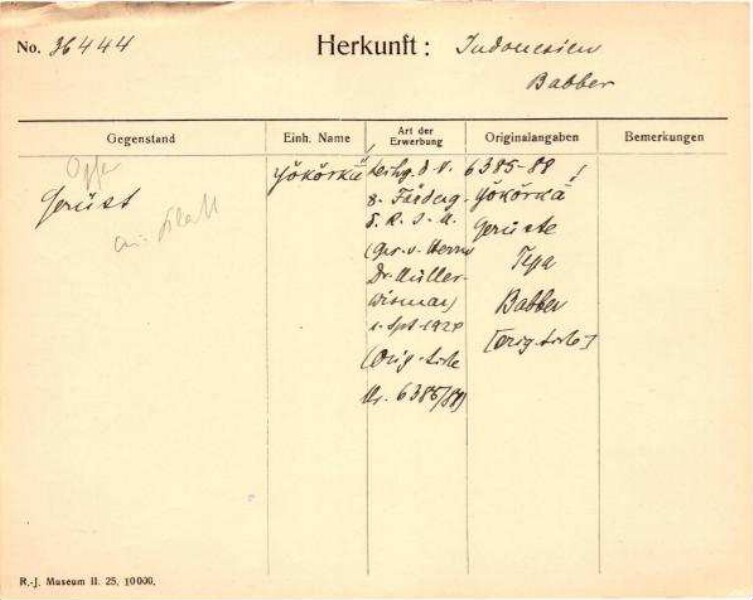 No. 36444
Herkunft: Indonesien
Babber
Gegenstand
Einh. Name
Art der Erwerbung
Originalangaben
Bemerkungen
Opfer
Gerüst
yökörkä
Leihg. d. V.
z. Förderg.
d. R. J. M.
(ges. v. Herrn
Dr. Müller-
Wismar)
Sept. 1924
(Orig.-Liste
Nr. 6385/88)
6385-88 !
yökörkä
Gerüste
Tepa
Babber
[Orig.-Liste]
R.-J. Museum II. 25. 10000.